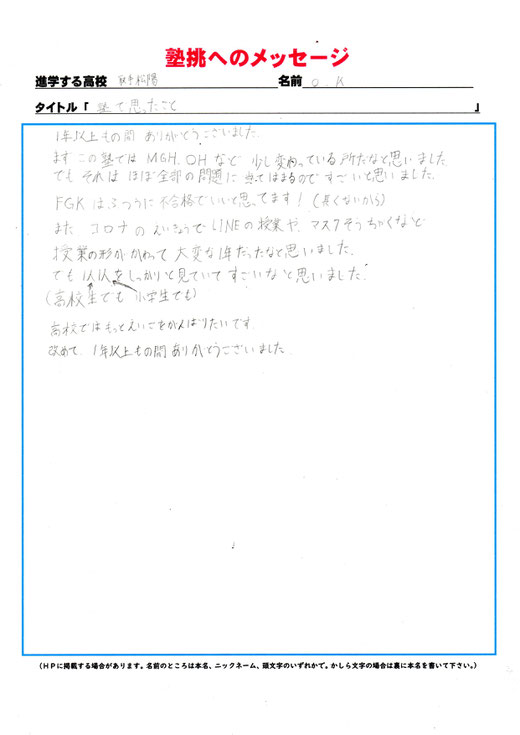 塾挑へのメッセージ
進学する高校 取手松陽 名前 O.K
タイトル「 塾で思ったこと 」
1年以上もの間 ありがとうございました.
まずこの塾では MGH.OHなど 少し変わっている所だなと思いました
でも それは ほぼ全部の問題に 当てはまるので すごいと思いました.
FGKはふつうに不合格でいいと思ってます!(長くないから)
また コロナの えいきょうで LINEの授業や、マスクそうちゃくなど
授業の形がかわって 大変な1年だったなと思いました.
でも 1人1人をしっかりと見ていて すごいなと思いました.
(高校生でも 小学生でも)
高校では もっとえいごをがんばりたいです.
改めて、1年以上もの間 ありがとうございました.
(HPに掲載する場合があります。名前のところは本名、ニックネーム、頭文字のいずれかで。かしら文字の場合は裏に本名を書いて下さい。)